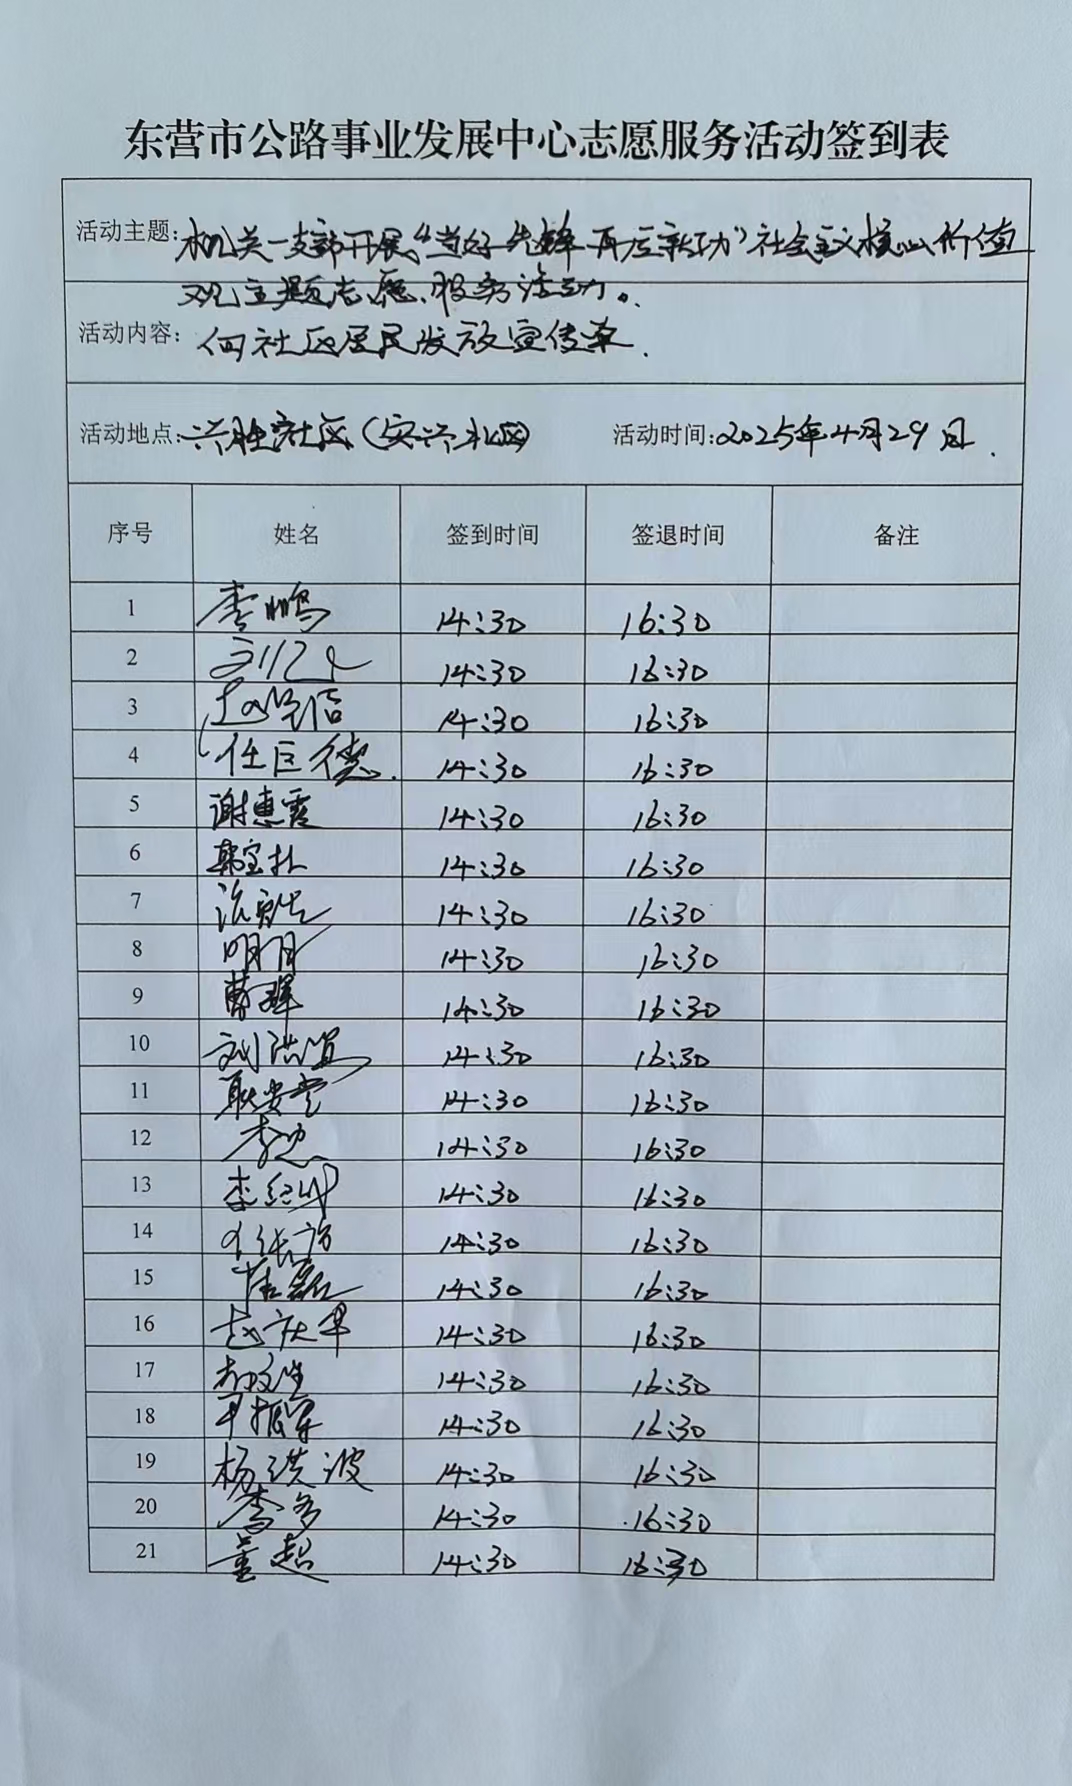 东营市公路事业发展中心志愿服务活动签到表
活动主题:机关一支部开展“当好先锋 再应新功”社会主义核心价值
观主题志愿服务活动。
活动内容:向社区居民发放宣传单.
活动地点:兴胜社区(安兴北区) 活动时间:2025年4月29日.
序号 姓名 签到时间 签退时间 备注
1 李鹏 14:30 16:30
2 14:30 16:30
3 14:30 16:30
4 任巨德. 14:30 16:30
5 谢惠霞 14:30 16:30
6 14:30 16:30
7 14:30 16:30
8 明月 14:30 16:30
9 曹辉 14:30 16:30
10 14:30 16:30
11 耿安堂 14:30 16:30
12 李忠 14:30 16:30
13 14:30 16:30
14 14:30 16:30
15 14:30 16:30
16 14:30 16:30
17 14:30 16:30
18 尹振军 14:30 16:30
19 杨洪波 14:30 16:30
20 李多 14:30 16:30
21 董超 14:30 16:30